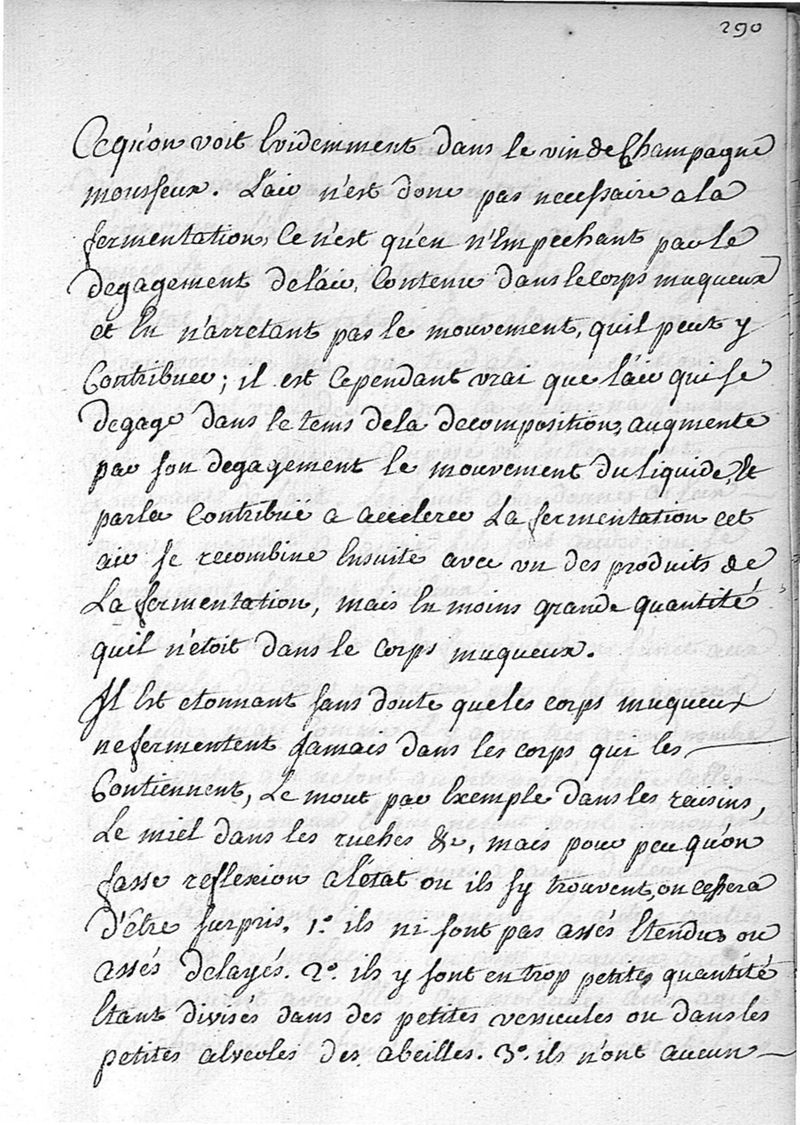 290
Cequ'on voit Evidemment dans le vin de Champagne
mousseux. L'air n'est donc pas necessaire a la
fermentation, Ce n'est qu'en n'Empechant par le
degagement de l'air, Contenu dans le corps muqueux
et En n'arretant pas le mouvement, quil peut y
Contribuer; il est Cependant vrai que l'air qui se
degage dans le tems dela decomposition, augmente
par son degagement le mouvement du liquide, et
parla Contribue a accelerer La fermentation cet
air se recombine Ensuite avec un des produits de
La fermentation, mais En moins grande quantité
quil n'étoit dans le corps muqueux.
Il Est etonnant sans doute que les corps muqueux
ne fermentent Jamais dans les corps qui les
Contiennent, Le mout par Exemple dans les raisins,
Le miel dans les ruches &c, mais pour peu qu'on
fasse reflexion a l'état ou ils s'y trouvent, on cessera
d'être surpris. 1.º ils ne sont pas assés Etendus ou
assés delayés. 2.º ils y sont en trop petites quantité
Etant divisés dans des petites vessicules ou dans les
petites alvéoles des abeilles. 3.º ils n'ont aucun